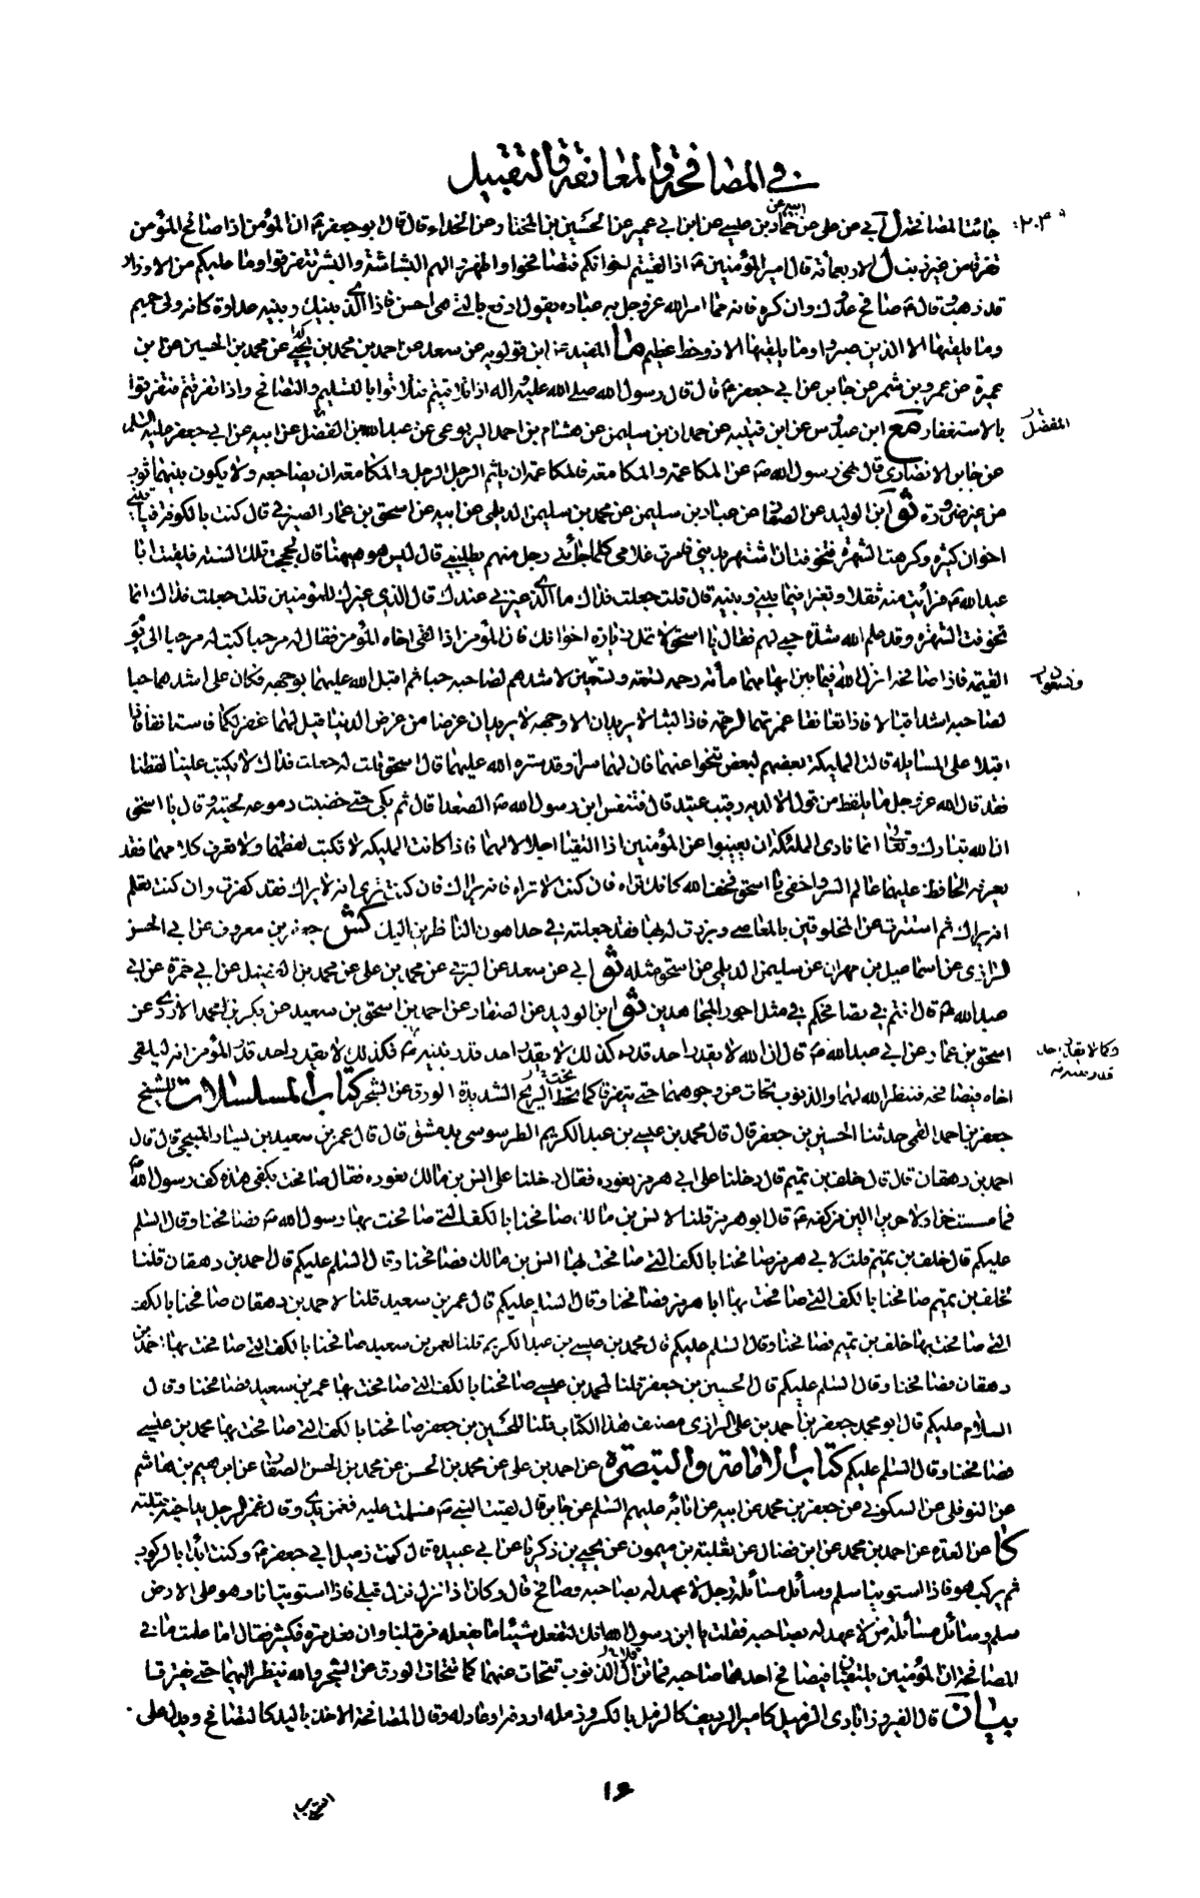 في المصافحة والمعانقة والتقبيل
جائنا المصافحة ل أبي عن علي عن حماد بن عيسى عن ابن أبي عمير عن الحسين بن المختار عن الحذاء قال قال أبو جعفر ع ان المؤمن اذا صافح المؤمن
تفرقا من غير ذنب ل الاربعمائة قال امير المؤمنين ع اذا لقيتم اخوانكم فتصافحوا واظهروا لهم البشاشة والبشر تتفرقوا وما عليكم من الاوزار
قد ذهب وقال ع صافح عدوك وان كره فانه مما امر الله عز وجل به عباده يقول ادفع بالتي هي احسن فاذا الذي بينك وبينه عداوة كانه ولي حميم
وما يلقيها الا الذين صبروا وما يلقيها الا ذو حظ عظيم ما المفيد عن ابن قولويه عن سعد عن احمد بن محمد بن يحيى عن محمد بن الحسين عن ابن
عميرة عن عمرو بن شمر عن جابر عن ابي جعفر ع قال قال رسول الله صلى الله عليه واله اذا تلاقيتم فتلاقوا بالتسليم والتصافح واذا تفرقتم فتفرقوا
المفضل
بالاستغفار مع ابن عبدوس عن ابن قتيبة عن حمدان بن سليمن عن هشام بن احمد اليربوعي عن عبد الله بن الفضل عن ابيه عن ابي جعفر عليه السلم
عن جابر الانصاري قال نهى رسول الله ص عن المكاعمة والمكامعة فالمكاعمة ان يلثم الرجل الرجل والمكامعة ان يضاجعه ولا يكون بينهما ثوب
من غير ضرورة ثو ابن الوليد عن الصفار عن عباد بن سليمن عن محمد بن سليمن الديلمي عن ابيه عن اسحق بن عمار الصيرفي قال كنت بالكوفة فيأتيني
اخوان كثيرة وكرهت الشهرة فتخوفت ان اشتهر بديني فامرت غلامي كلما جائني رجل منهم يطلبني قال ليس هو ههنا قال فحججت تلك السنة فلقيت ابا
عبد الله ع فرأيت منه ثقلا وتغيرا فيما بيني وبينه قال قلت جعلت فداك ما الذي غيرني عندك قال الذي غيرك للمؤمنين قلت جعلت فداك انما
تخوفت الشهرة وقد علم الله شدة حبي لهم فقال يا اسحق لا تمل زيارة اخوانك فان المؤمن اذا لقي اخاه المؤمن فقال له مرحبا كتب له مرحبا الى يوم
القيمة فاذا صافحه انزل الله فيما بين ابهامهما مأة رحمة تسعة وتسعين لاشدهم لصاحبه حبا ثم اقبل الله عليهما بوجهه فكان على اشدهما حبا
لصاحبه اشد اقبالا فاذا تعانقا غمرتهما الرحمة فاذا لبثا لا يريدان الا وجهه لا يريدان عرضا من عرض الدنيا قيل لهما غفر لكما فاستانفا فاذا
اقبلا على المسائلة قالت المليكة بعضهم لبعض تنحوا عنهما فان لهما سرا وقد ستره الله عليهما قال اسحق قلت له جعلت فداك لا يكتب علينا لفظنا
فقد قال الله عز وجل ما يلفظ من قول الا لديه رقيب عتيد قال فتنفس ابن رسول الله ص الصعداء قال ثم بكى حتى خضبت دموعه لحيته وقال يا اسحق
ان الله تبارك وتعالى انما نادى الملئكة ان يغيبوا عن المؤمنين اذا التقيا اجلالا لهما فاذا كانت المليكة لا تكتب لفظهما ولا تعرف كلامهما فقد
يعرفه الحافظ عليهما عالم السر واخفى يا اسحق فخف الله كانك تراه فان كنت لا تراه فانه يراك فان كنت ترى انه لا يراك فقد كفرت وان كنت تعلم
انه يراك ثم استترت عن المخلوقين بالمعاصي وبرزت له بها فقد جعلته في حد اهون الناظرين اليك كش جعفر بن معروف عن ابي الحسن
الرازي عن اسماعيل بن مهران عن سليمن الديلمي عن اسحق مثله ثو ابي عن سعد عن البرقي عن محمد بن علي عن محمد بن الفضيل عن ابي حمزة عن ابي
عبد الله ع قال انتم في تصافحكم في مثل اجور المجاهدين ثو ابن الوليد عن الصفار عن احمد بن اسحق بن سعيد عن بكر بن محمد الازدي عن
اسحق بن عمار عن ابي عبد الله ع قال ان الله لا يقدر احد قدره كذلك لا يقدر احد قدر نبيه ع فكذلك لا يقدر احد قدر المؤمن انه ليلقى
اخاه فيصافحه فينظر الله لهما والذنوب تتحات عن وجوههما حتى يتفرقا كما تحت الريح الشديدة الورق عن الشجر كتاب المسلسلات للشيخ
جعفر بن احمد القمي حدثنا الحسين بن جعفر قال قال محمد بن عيسى بن عبد الكريم الطرسوسي بدمشق قال قال عمر بن سعيد بن يسار المنبجي قال قال
احمد بن دهقان قال قال خلف بن تميم قال دخلنا على ابي هرمز نعوده فقال دخلنا على انس بن مالك نعوده فقال صافحت بكفي هذه كف رسول الله ص
فما مسست خزا ولا حريرا الين من كفه ع قال ابو هرمز قلنا لانس بن مالك صافحنا بالكف التي صافحت بها رسول الله ص فصافحنا وقال السلم
عليكم قال خلف بن تميم قلت لابي هرمز صافحنا بالكف التي صافحت بها انس بن مالك فصافحنا وقال السلم عليكم قال احمد بن دهقان قلنا
لخلف بن تميم صافحنا بالكف التي صافحت بها ابا هرمز فصافحنا وقال السلم عليكم قال عمر بن سعيد قلنا لاحمد بن دهقان صافحنا بالكف
التي صافحت بها خلف بن تميم فصافحنا وقال السلم عليكم قال محمد بن عيسى بن عبد الكريم قلنا لعمر بن سعيد صافحنا بالكف التي صافحت بها احمد بن
دهقان فصافحنا وقال السلم عليكم قال الحسين بن جعفر قلنا لمحمد بن عيسى صافحنا بالكف التي صافحت بها عمر بن سعيد فصافحنا وقال
السلام عليكم قال ابو محمد جعفر بن احمد بن علي الرازي مصنف هذا الكتاب قلنا للحسين بن جعفر صافحنا بالكف التي صافحت بها محمد بن عيسى
فصافحنا وقال السلم عليكم كتاب الامامة والتبصرة عن احمد بن علي عن محمد بن الحسن عن محمد بن الحسن الصفار عن ابرهيم بن هاشم
عن النوفلي عن السكوني عن جعفر بن محمد عن ابيه عن ابائه عليهم السلم عن جابر قال لقيت النبي ص فسلمت عليه فغمز يدي وقال غمز الرجل يد اخيه قبلته
كا عن العدة عن احمد بن محمد عن ابن فضال عن ثعلبة بن ميمون عن يحيى بن زكريا عن ابي عبيدة قال كنت زميل ابي جعفر ع وكنت ابدأ بالركوب
ثم يركب هو فاذا استوينا سلم وسائل مسائلة رجل لا عهد له بصاحبه وصافح قال وكان اذا نزل نزل قبلي فاذا استويت انا وهو على الارض
سلم وسائل مسائلة من لا عهد له بصاحبه فقلت يا ابن رسول الله انك لتفعل شيئا ما يفعله من قبلنا وان فعل مرة فكثير فقال اما علمت ما في
المصافحة ان المؤمنين يلتقيان فيصافح احدهما صاحبه فما تزال الذنوب تتحات عنهما كما تتحات الورق عن الشجر والله ينظر اليهما حتى يفترقا
بيان قال الفيروزآبادي الزميل كامير الرديف كالزمل بالكسر وزمله اردفه او عادله وقال المصافحة الاخذ باليد كالتصافح ويدل على
١٦